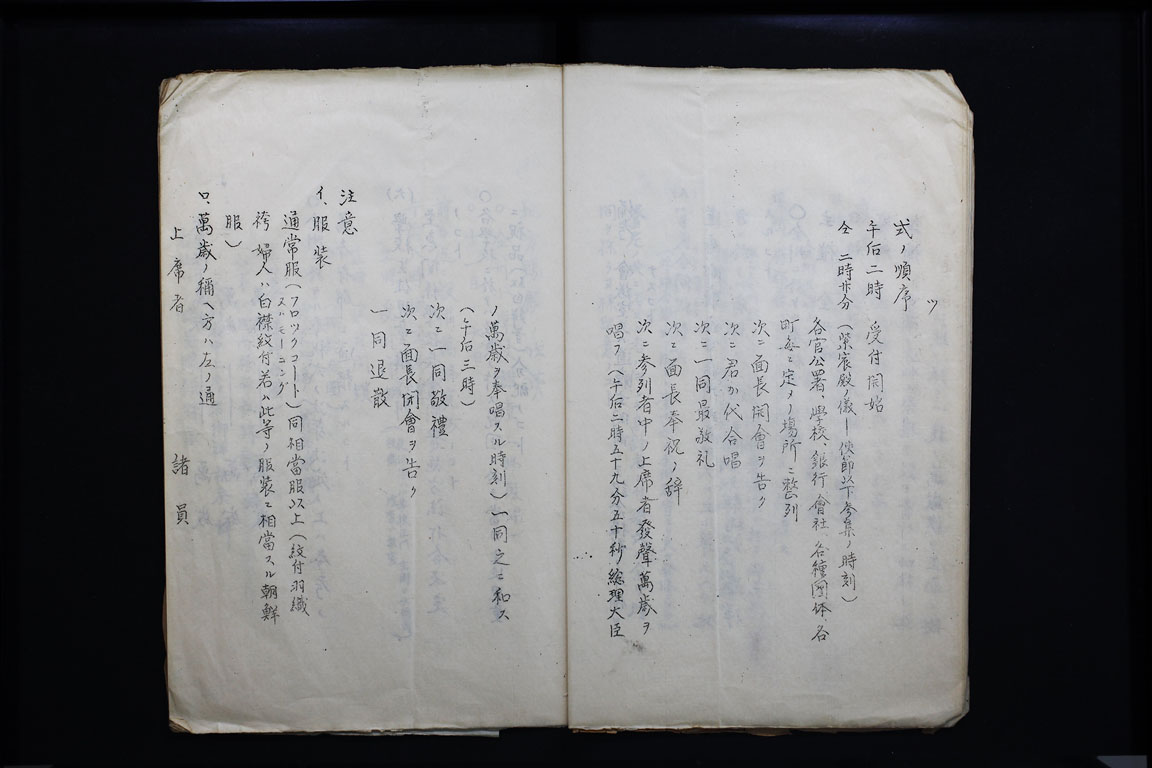 ツ
式ノ順序
午后二時　受付開始
仝　二時廿分（紫宸殿ノ儀ー使節以下参集ノ時刻）
各官公署、學校、銀行會社各種團体各
町毎ニ定メノ場所ニ整列
次ニ面長開會ヲ告ク
次ニ君か代合唱
次ニ一同最敬礼
次ニ面長奉祝ノ辞
次ニ参列者中ノ上席者發聲萬歳ヲ
唱フ（午后二時五十九分五十秒総理大臣
ノ萬歳ヲ奉唱スル時刻）一同之ニ和ス
（午后三時）
次ニ一同敬禮
次ニ面長閉會ヲ告ク
一同退散
注意
イ、服装
通常服（フロックコート又ハモーニング）同相當服以上（紋付羽織
袴婦人ハ白襟紋付若ハ此等ノ服装ニ相當スル朝鮮
服）
ロ、萬歳ノ稱ヘ方ハ左ノ通
上席者　諸員